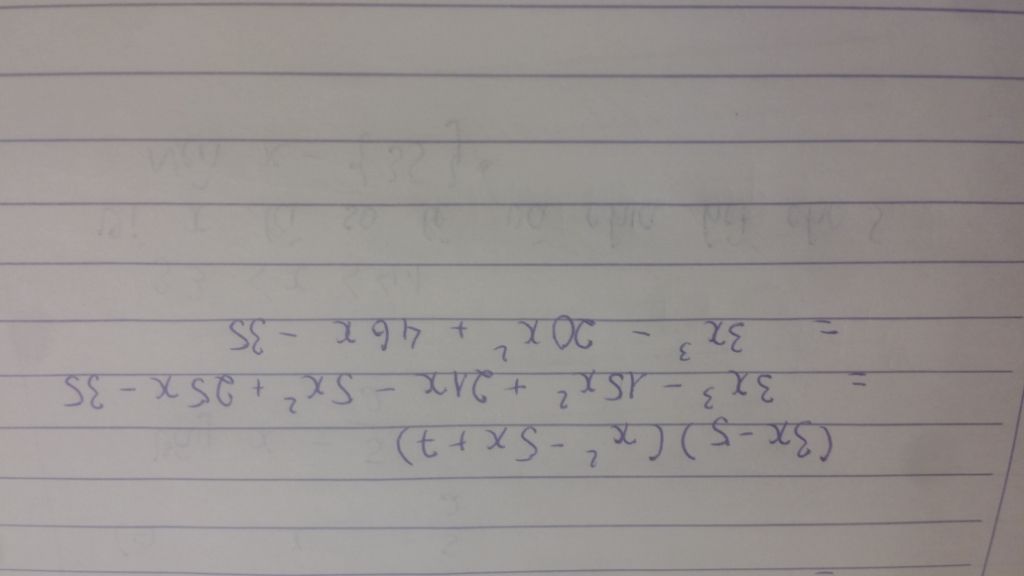 (3x-5)(x²-5x+7)
= 3x³ - 15x² + 21x - 5x² + 25x - 35
= 3x³ - 20x² + 46x - 35